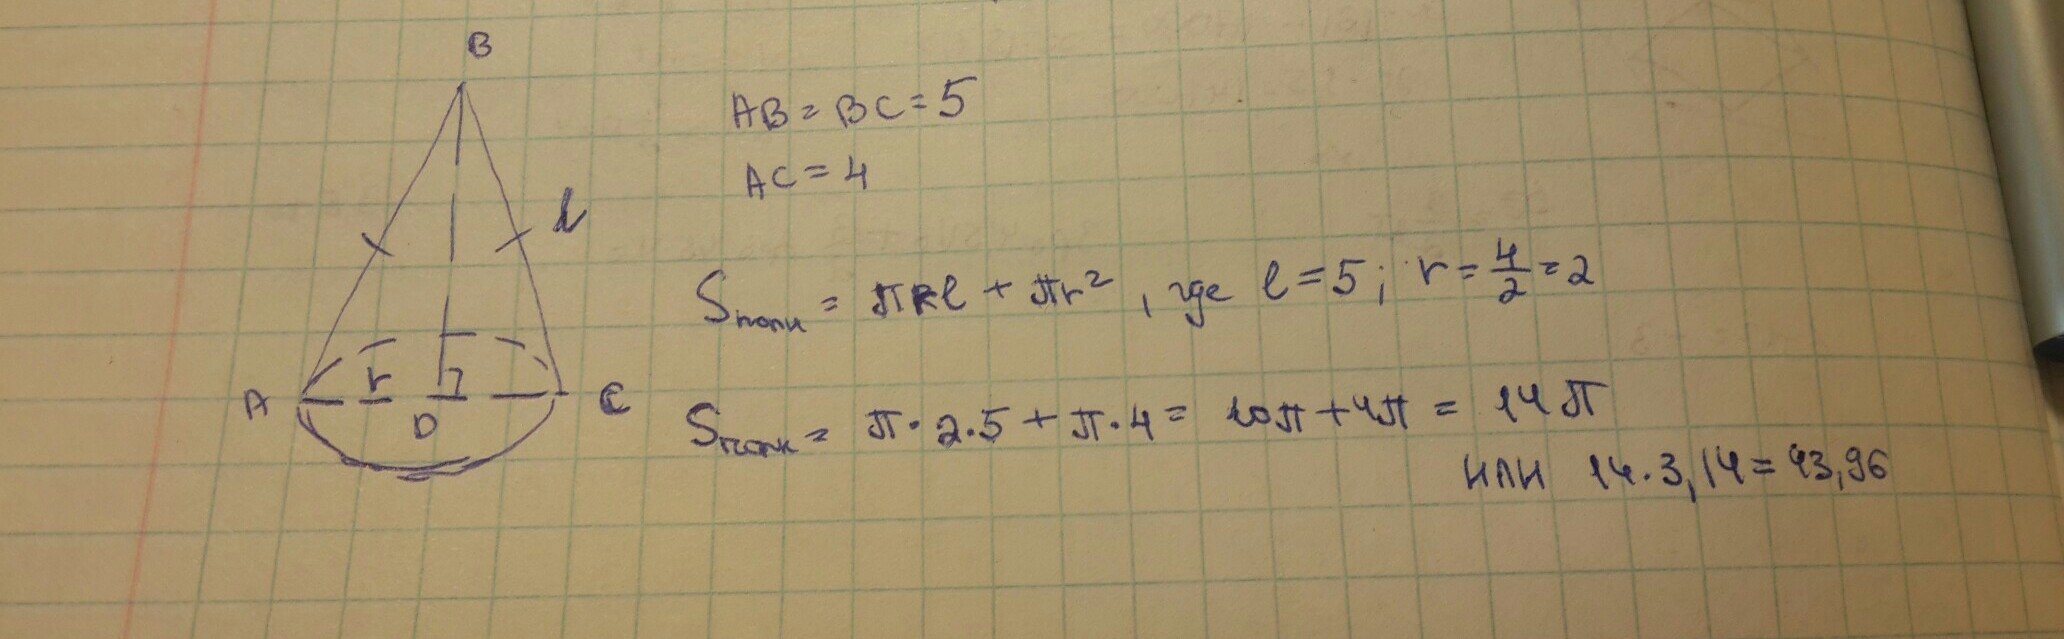 B
AB = BC = 5
AC = 4
l
Sполн = πRl + πr², где l = 5; r = 4/2 = 2
A r D C
Sполн = π·2·5 + π·4 = 10π + 4π = 14π
или 14·3,14 = 43,96